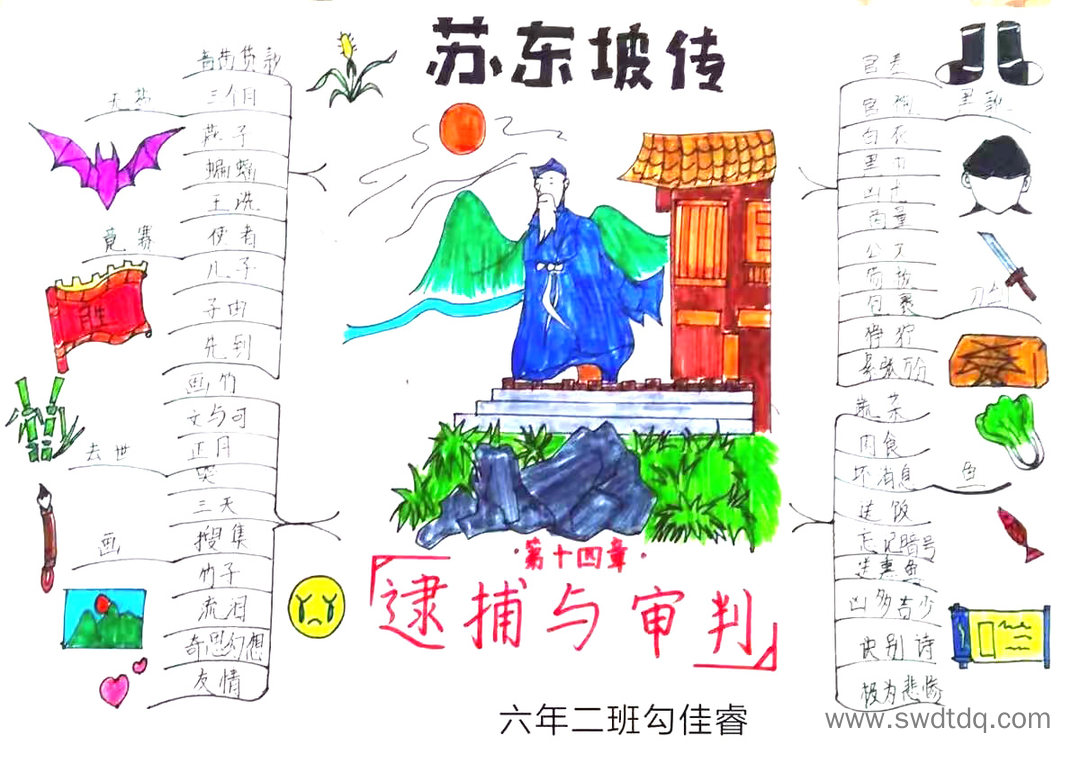 苏东坡传
青苗贷款
三个月
无盐
燕子
蝙蝠
王诜
使者
竟赛
儿子
子由
先到
胜
画竹
文与可
正月
去世
哭
三天
搜集
画
竹子
流泪
奇思幻想
友情
官差
官袍
黑靴
白衣
黑巾
商量
公文
包裹
刀剑
狰狞
蔬菜
肉食
坏消息
鱼
送饭
忘记暗号
送熏鱼
凶多吉少
诀别诗
极为悲惨
·第十四章·
「逮捕与审判」
六年二班勾佳睿
www.swdtdq.com